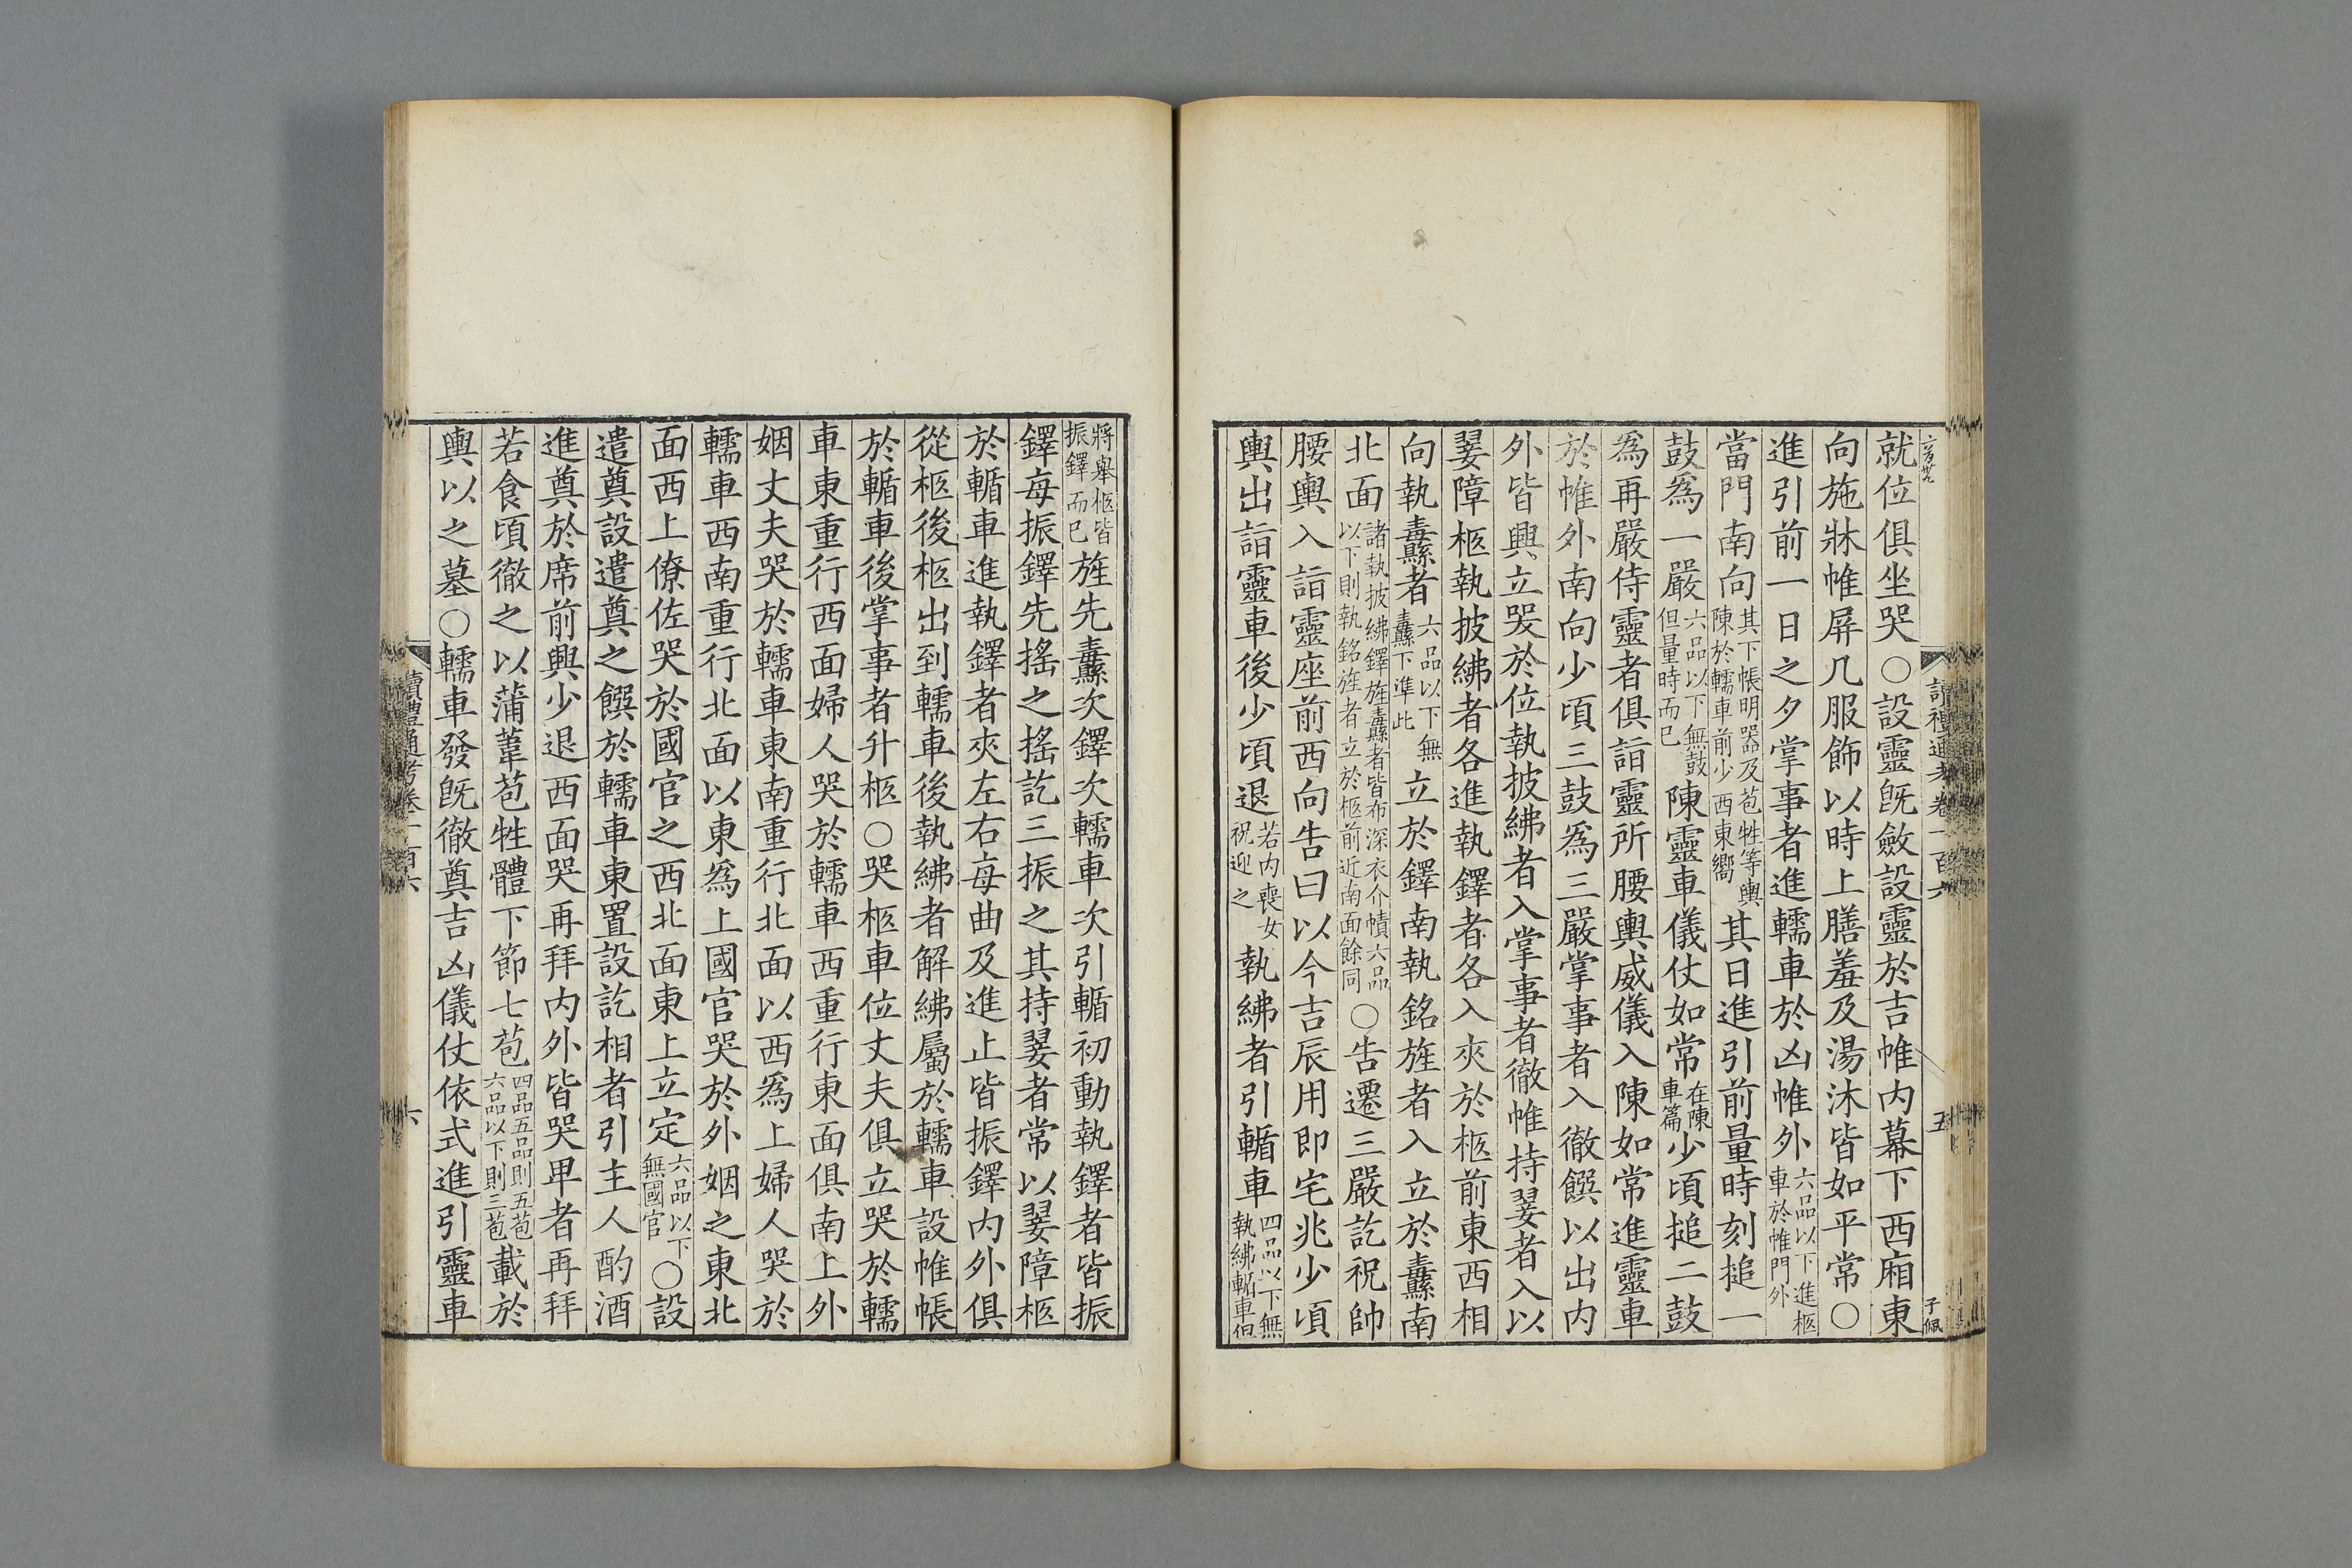 就位俱坐哭○設靈旣斂設靈於吉帷内幕下西廂東
向施牀帷屏几服飾以時上膳羞及湯沐皆如平常○
進引前一日之夕掌事者進轜車於凶帷外六品以下進柩車於帷門外
當門南向其下帳明器及苞牲等輿陳於轜車前少西東嚮其日進引前量時刻搥一
鼓爲一嚴六品以下無鼓但量時而已陳靈車儀仗如常在陳車篇少頃搥二鼓
爲再嚴侍靈者俱詣靈所腰輿威儀入陳如常進靈車
於帷外南向少頃三鼓爲三嚴掌事者入徹饌以出内
外皆興立哭於位執披紼者入掌事者徹帷持翣者入以
翣障柩執披紼者各進執鐸者各入夾於柩前東西相
向執纛者六品以下無纛下準此立於鐸南執銘旌者入立於纛南
北面諸執披紼鐸旌纛者皆布深衣介幘六品以下則執銘旌者立於柩前近南面餘同○告遷三嚴訖祝帥
腰輿入詣靈座前西向告曰以今吉辰用即宅兆少頃
輿出詣靈車後少頃退若内喪女祝迎之執紼者引輴車四品以下無執紼輴車但
將舉柩皆振鐸而已旌先纛次鐸次轜車次引輴初動執鐸者皆振
鐸每振鐸先搖之搖訖三振之其持翣者常以翣障柩
於輴車進執鐸者夾左右每曲及進止皆振鐸内外俱
從柩後柩出到轜車後執紼者解紼屬於轜車設帷帳
於輴車後掌事者升柩○哭柩車位丈夫俱立哭於轜
車東重行西面婦人哭於轜車西重行東面俱南上外
姻丈夫哭於轜車東南重行北面以西爲上婦人哭於
轜車西南重行北面以東爲上國官哭於外姻之東北
面西上僚佐哭於國官之西北面東上立定六品以下無國官○設
遣奠設遣奠之饌於轜車東置設訖相者引主人酌酒
進奠於席前興少退西面哭再拜内外皆哭卑者再拜
若食頃徹之以蒲葦苞牲體下節七苞四品五品則五苞六品以下則三苞載於
輿以之墓○轜車發旣徹奠吉凶儀仗依式進引靈車
讀禮通考卷一百六
五
子佩
讀禮通考卷一百六
六